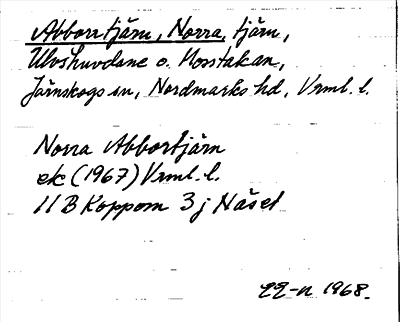 Abborrtjärn, Norra, tjärn,
Ulvshuvdane o. Mosstakan,
Järnskogs sn, Nordmarks hd, Vrml. l.
Norra Abbortjärn
ek (1967) Vrml. l.
11B Koppom 3 j Näset
1968.